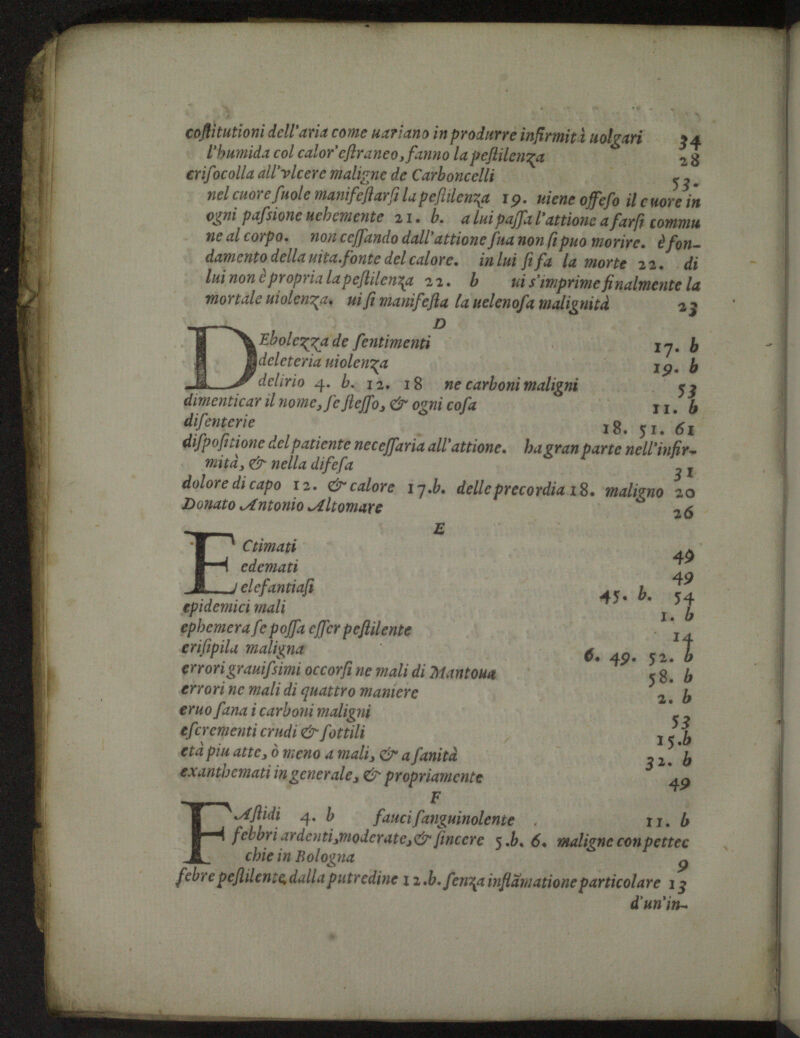 coſtitutioni dell'aria come uariano in produrre infirmità uolgari 34
l'humida col calor'eſtraneo, fanno la peſtilenza 28
criſocolla all'vlcere maligne de Carboncelli 53.
nel cuore ſuole manifeſtarſi la peſtilenza 19. uiene offeſo il cuore in
ogni paſsione uehemente 21. b. a lui paſſa l'attione a farſi commu
ne al corpo. non ceſſando dall'attione ſua non ſi puo morire. è fon-
damento della uita.fonte del calore. in lui ſi fa la morte 22. di
lui non è propria la peſtilenza 22. b ui s'imprime finalmente la
mortale uiolenza. ui ſi manifeſta la uelenoſa malignità 23
D
DEbolezza de ſentimenti 17. b
deleteria uiolenza 19. b
delirio 4. b. 12. 18 ne carboni maligni 53
dimenticar il nome, ſe ſteſſo, & ogni coſa 11. b
diſenterie 18. 51. 61
diſpoſitione del patiente neceſſaria all'attione. ha gran parte nell'infir-
mità, & nella difeſa 31
dolore di capo 12. & calore 17.b. delle precordia 18. maligno 20
Donato Antonio Altomare 26
E
ECtimati 49
edemati 49
elefantiaſi 45. b. 54
epidemici mali 1. b
ephemera ſe poſſa eſſer peſtilente 14
eriſipila maligna 6. 49. 52. b
errori grauiſsimi occorſi ne mali di Mantoua 58. b
errori ne mali di quattro maniere 2. b
eruo ſana i carboni maligni 53
eſcrementi crudi & ſottili 15.b
età piu atte, ò meno a mali, & a ſanità 32. b
exanthemati in generale, & propriamente 49
F
FAſtidi 4. b fauci ſanguinolente . 11. b
febbri ardenti,moderate,& ſincere 5.b. 6. maligne con pettec
chie in Bologna 9
febre peſtilente, dalla putredine 12.b. ſenza inflãmatione particolare 13
d'un'in-